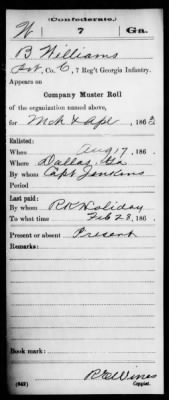 (Confederate.)
W 7 Ga.
B Williams
Pvt, Co. C, 7 Reg't Georgia Infantry.
Appears on
Company Muster Roll
of the organization named above,
for Mch & Apl, 186 3.
Enlisted:
When Aug 17, 186 .
Where Dallas, Ga
By whom Capt Jenkins
Period
Last paid:
By whom R K Holiday
To what time Feb 28, 186 .
Present or absent Present
Remarks:
Book mark:
(642) Copyist.